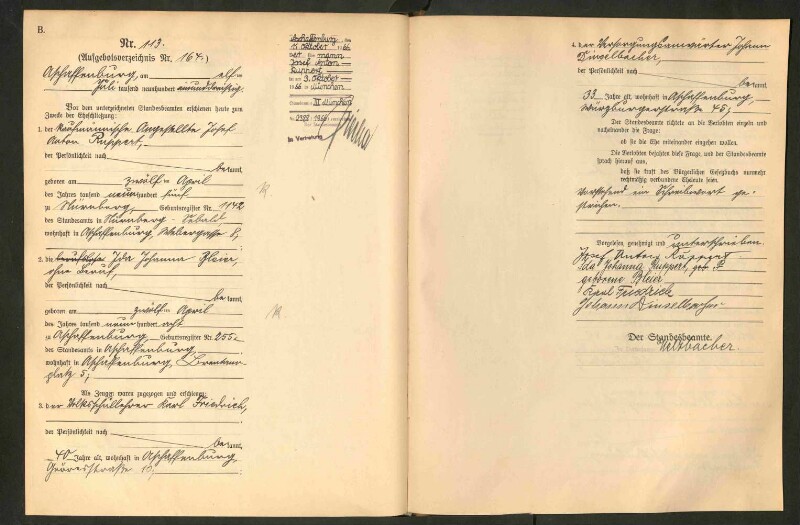 B.
Nr. 113.
(Aufgebotsverzeichnis Nr. 164.)
Aschaffenburg, am elften
Juli tausend neunhundert
Vor dem unterzeichneten Standesbeamten erschienen heute zum
Zwecke der Eheschließung:
1. der kaufmännische Angestellte Josef
Anton Ruppert,
der Persönlichkeit nach
bekannt,
geboren am zwölften April
des Jahres tausend neunhundert fünf
zu Nürnberg, Geburtsregister Nr. 1142
des Standesamts in Nürnberg-Sebald
wohnhaft in Aschaffenburg, Webergasse 8;
2. die berufslose Ida Johanna Bleier,
ohne Beruf,
der Persönlichkeit nach
bekannt,
geboren am zwölften April
des Jahres tausend neunhundert acht
zu Aschaffenburg, Geburtsregister Nr. 255
des Standesamts in Aschaffenburg
wohnhaft in Aschaffenburg, Brentano-
platz 5;
Als Zeugen waren zugezogen und erschienen:
3. der Volksschullehrer Karl Friedrich,
der Persönlichkeit nach
bekannt,
40 Jahre alt, wohnhaft in Aschaffenburg,
Görresstraße
Aschaffenburg, den
Oktober 1966
Der Ehemann
Josef Anton
Ruppert
ist am 3. Oktober
1966 in München
Standesamt III München
Nr. 2388/1966
In Vertretung
4. der Versorgungsanwärter Johann
Dinselbacher,
der Persönlichkeit nach
bekannt,
33 Jahre alt, wohnhaft in Aschaffenburg,
Würzburgerstraße 45;
Der Standesbeamte richtete an die Verlobten einzeln und
nacheinander die Frage:
ob sie die Ehe miteinander eingehen wollen.
Die Verlobten bejahten diese Frage, und der Standesbeamte
sprach hierauf aus,
daß sie kraft des Bürgerlichen Gesetzbuchs nunmehr
rechtmäßig verbundene Eheleute seien.
Vorstehend ein Schreibwort ge-
strichen.
Vorgelesen, genehmigt und unterschrieben.
Josef Anton Ruppert
Ida Johanna Ruppert,
geborene Bleier
Karl Friedrich
Johann Dinselbacher
Der Standesbeamte.